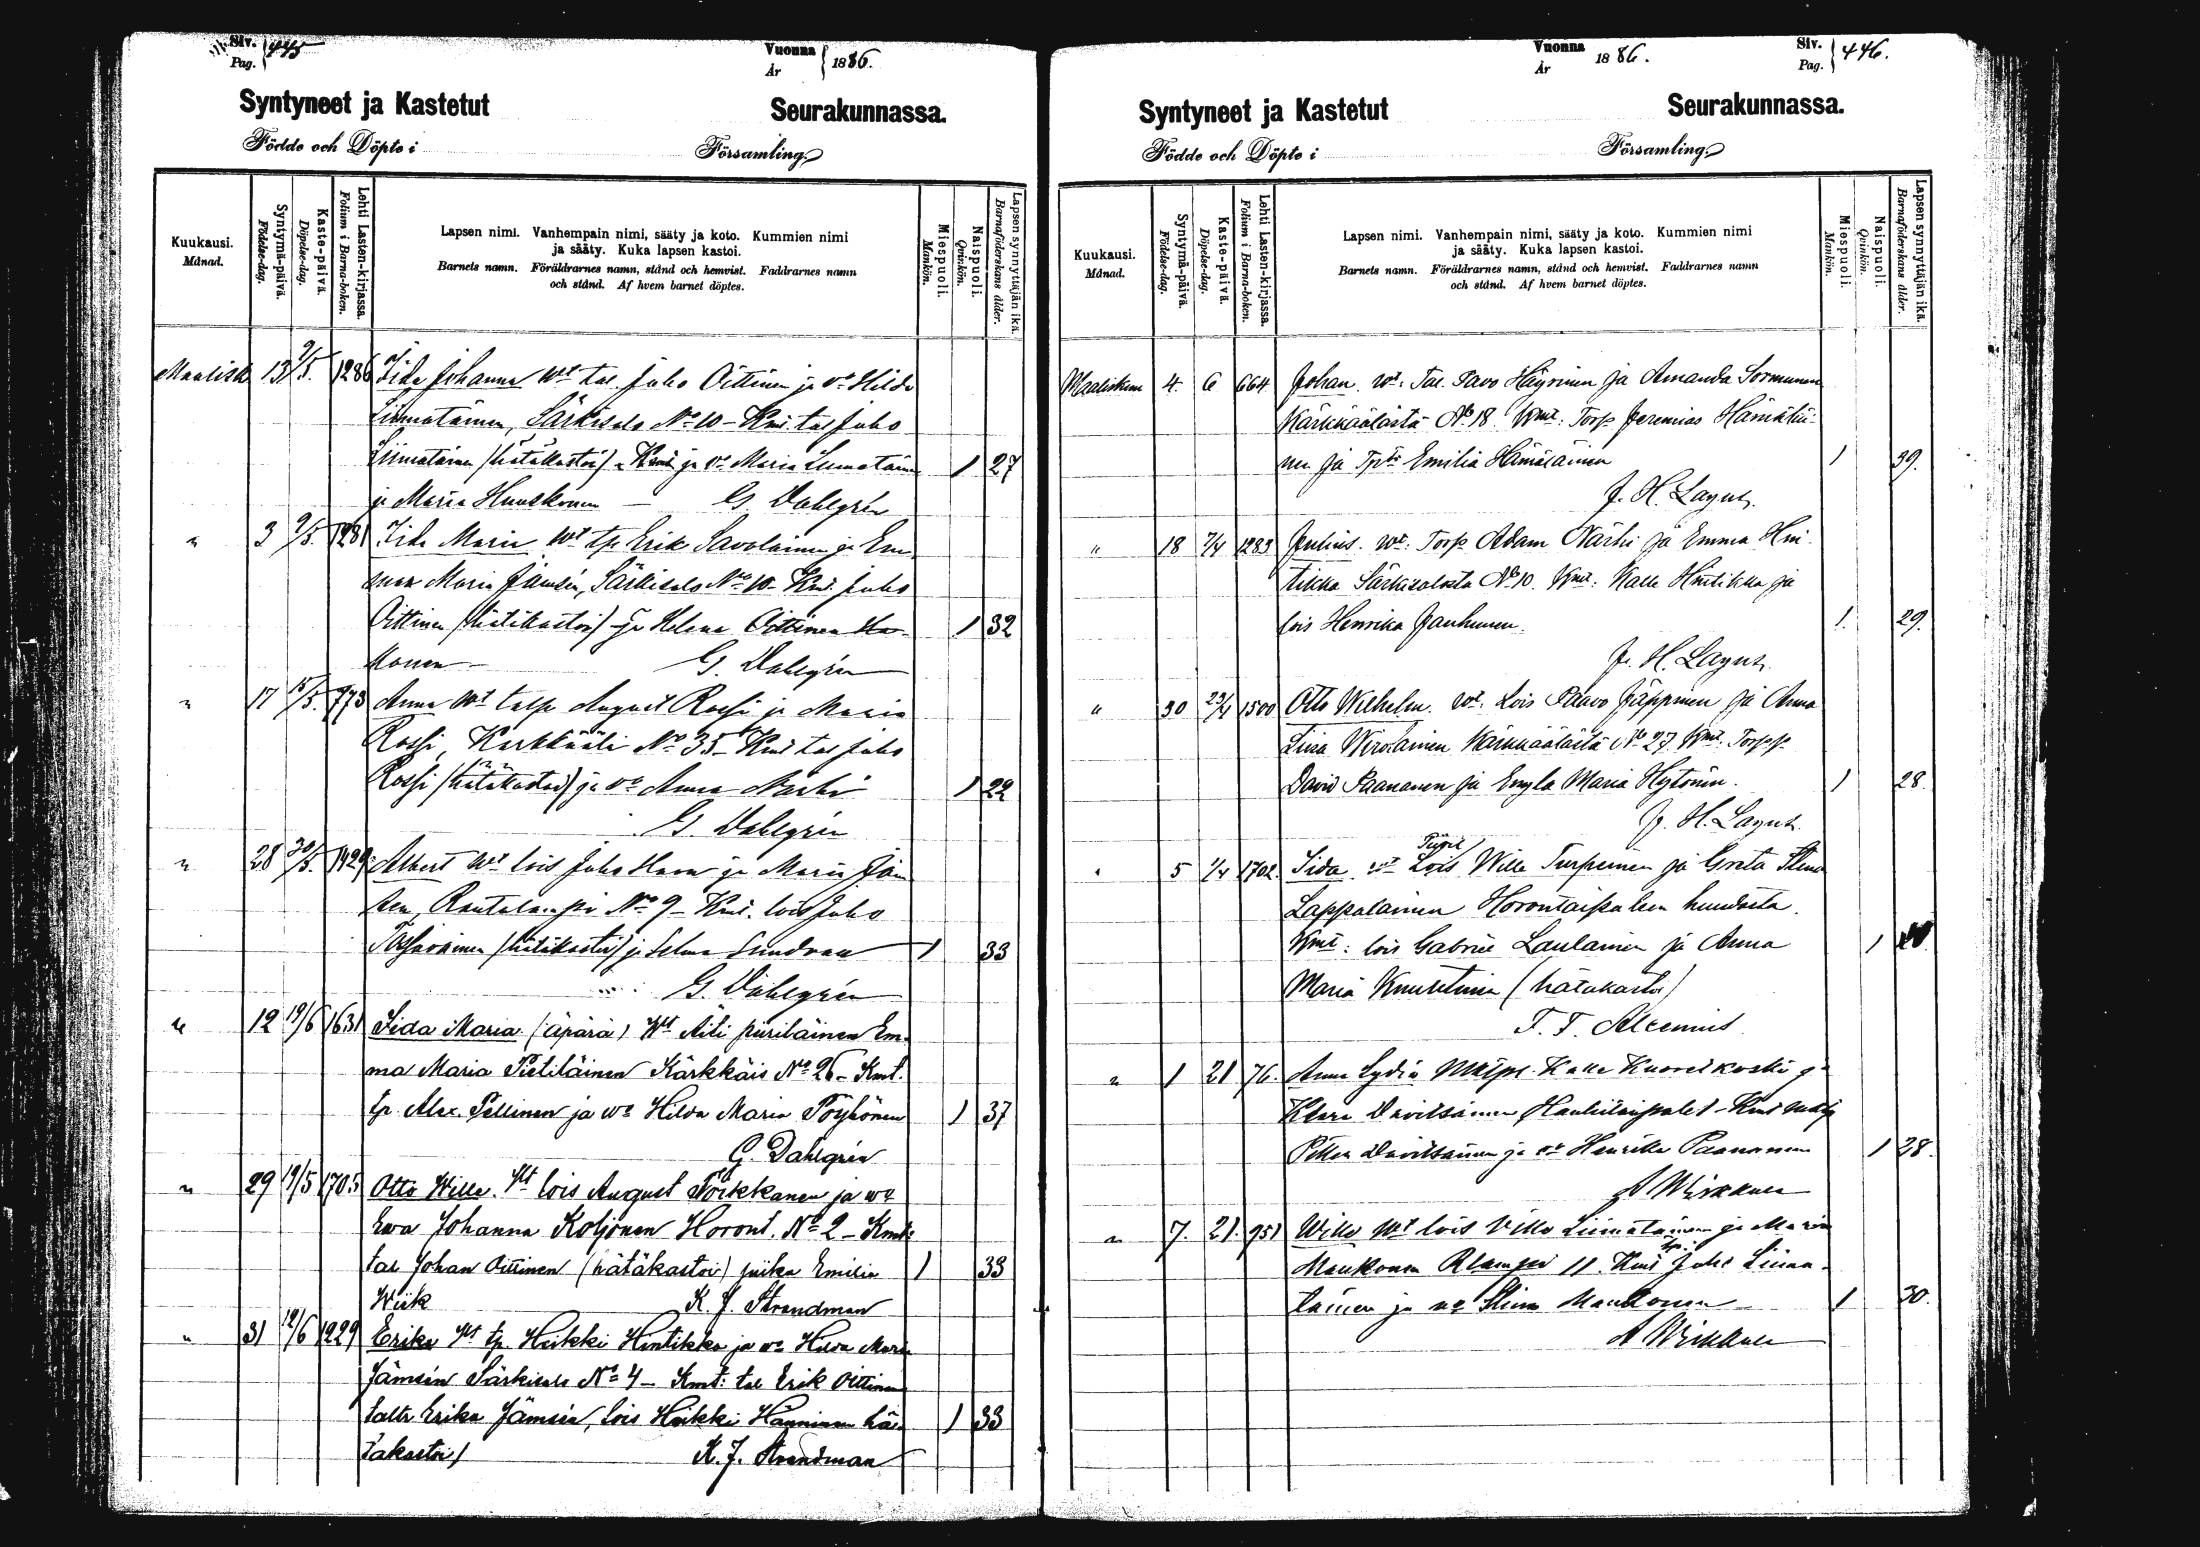 Siv. Pag. 445
Vuonna År 1886.
Syntyneet ja Kastetut Seurakunnassa.
Födde och Döpte i Församling.
Kuukausi. Månad.
Syntymä-päivä. Födelse-dag.
Kaste-päivä. Döpelse-dag.
Lehti Lasten-kirjassa. Folium i Barna-boken.
Lapsen nimi. Vanhempain nimi, sääty ja koto. Kummien nimi
ja sääty. Kuka lapsen kastoi.
Barnets namn. Föräldrarnes namn, stånd och hemvist. Faddrarnes namn
och stånd. Af hvem barnet döptes.
Miespuoli. Mankön.
Naispuoli. Qvinkön.
Lapsen synnyttäjän ikä. Barnaföderskans ålder.
Maalisk 13 9/5. 1286 Iida Johanna Wt tal. Juho Oittinen ja vo Hilda
Liimatainen, Särkisalo No 10 - Kmt. tal Juho
Liimatainen (hätäkastoi) ja vo Maria Liimatainen 1 27
ja Maria Huuskonen — G. Dahlgrén
" 3 9/5. 1281 Iida Maria Wt tp Erik Savolainen ja Em
Maria Jämsén, Särkisalo No 10 - Kmt. Juho
Oittinen (hätäkastoi) ja Helena Oittinen 1 32
G. Dahlgrén
" 17 15/5. 773 Anna Wt talp August Rossi ja Maria
Rossi, Kärkkääli No 35 - Kmt tal Juho
Rossi (hätäkastoi) ja vo Anna Närhi 1 22
G. Dahlgrén
" 28 30/5. 1429 Albert Wt lois Juho ja Maria Jäm
sen, Rautalampi No 9 - Kmt. lois Juho
(hätäkastoi) ja Selma Sundman 1 33
G. Dahlgrén
" 12 19/6 1631 Iida Maria (äpärä) Wt Äiti piiriläinen Em-
ma Maria Pietiläinen Kärkkäis No 26 - Kmt.
tp. Alex. Pellinen ja wo Hilda Maria Pöyhönen 1 37
G. Dahlgrén
" 29 19/5 1705 Otto Wille. Wt lois August Törkkänen ja wo
Ewa Johanna Koljonen Horont. No 2 - Kmt:
tal Johan Oittinen (hätäkastoi) piika Emilia 1 33
Wiik K. J. Strandman
" 31 12/6 1229 Erika Wt tp. Heikki Hintikka ja vo Hilda Maria
Jämsén Särkisalo No 4 - Kmt: tal Erik Oittinen
taltr Erika Jämsén, lois Heikki Hänninen hä- 1 33
täkastoi) K. J. Strandman
Vuonna År 1886.
Siv. Pag. 446.
Syntyneet ja Kastetut Seurakunnassa.
Födde och Döpte i Församling.
Kuukausi. Månad.
Syntymä-päivä. Födelse-dag.
Kaste-päivä. Döpelse-dag.
Lehti Lasten-kirjassa. Folium i Barna-boken.
Lapsen nimi. Vanhempain nimi, sääty ja koto. Kummien nimi
ja sääty. Kuka lapsen kastoi.
Barnets namn. Föräldrarnes namn, stånd och hemvist. Faddrarnes namn
och stånd. Af hvem barnet döptes.
Miespuoli. Mankön.
Naispuoli. Qvinkön.
Lapsen synnyttäjän ikä. Barnaföderskans ålder.
Maaliskuu 4. 6 664 Johan. Wt: Tal. Pavo Häyrinen ja Amanda Sormunen
Kärkkäälästä No 18. Kmt: Torp Jeremias Hämäläi-
nen ja Tptr Emilia Hämäläinen 1 39.
J. H. Lagus.
" 18 7/4 1283 Julius. Wt: Torp Adam Närhi ja Emma Hin
tikka Särkisalosta No 10. Kmt: Kalle Hintikka ja
lois Henrika Janhunen. 1. 29.
J. H. Lagus.
" 30 23/4 1500 Otto Wilhelm. Wt: Lois Paavo Jäppinen ja Anna
Liisa Wirolainen Kärkkäälästä No 27. Kmt: Torpp
David Paananen ja Maria Hytönen. 1 28.
J. H. Lagus.
" 5 1/4 1702. Iida wt Lois Wille Turpeinen ja Greta Stina
Lappalainen Horontaipaleen kunnasta.
Kmt: lois Gabriel Laulainen ja Anna 1
Maria Knuutinen (hätäkastoi)
" 1 21 76. Anna Lydia Kalle Kuoreskoski ja
Klara Davidsainen Hankitaipalet - Kmt
Petter Davidsainen ja vo Henrika Paananen 1 28.
A Wirkkula
" 7. 21. 951 Wille Wt lois Ville Liimatainen ja Maria
Maukonen Rlampi 11. Kmt tp. Juho Liima-
tainen ja vo Stina Maukonen 1 30.
A Wirkkula